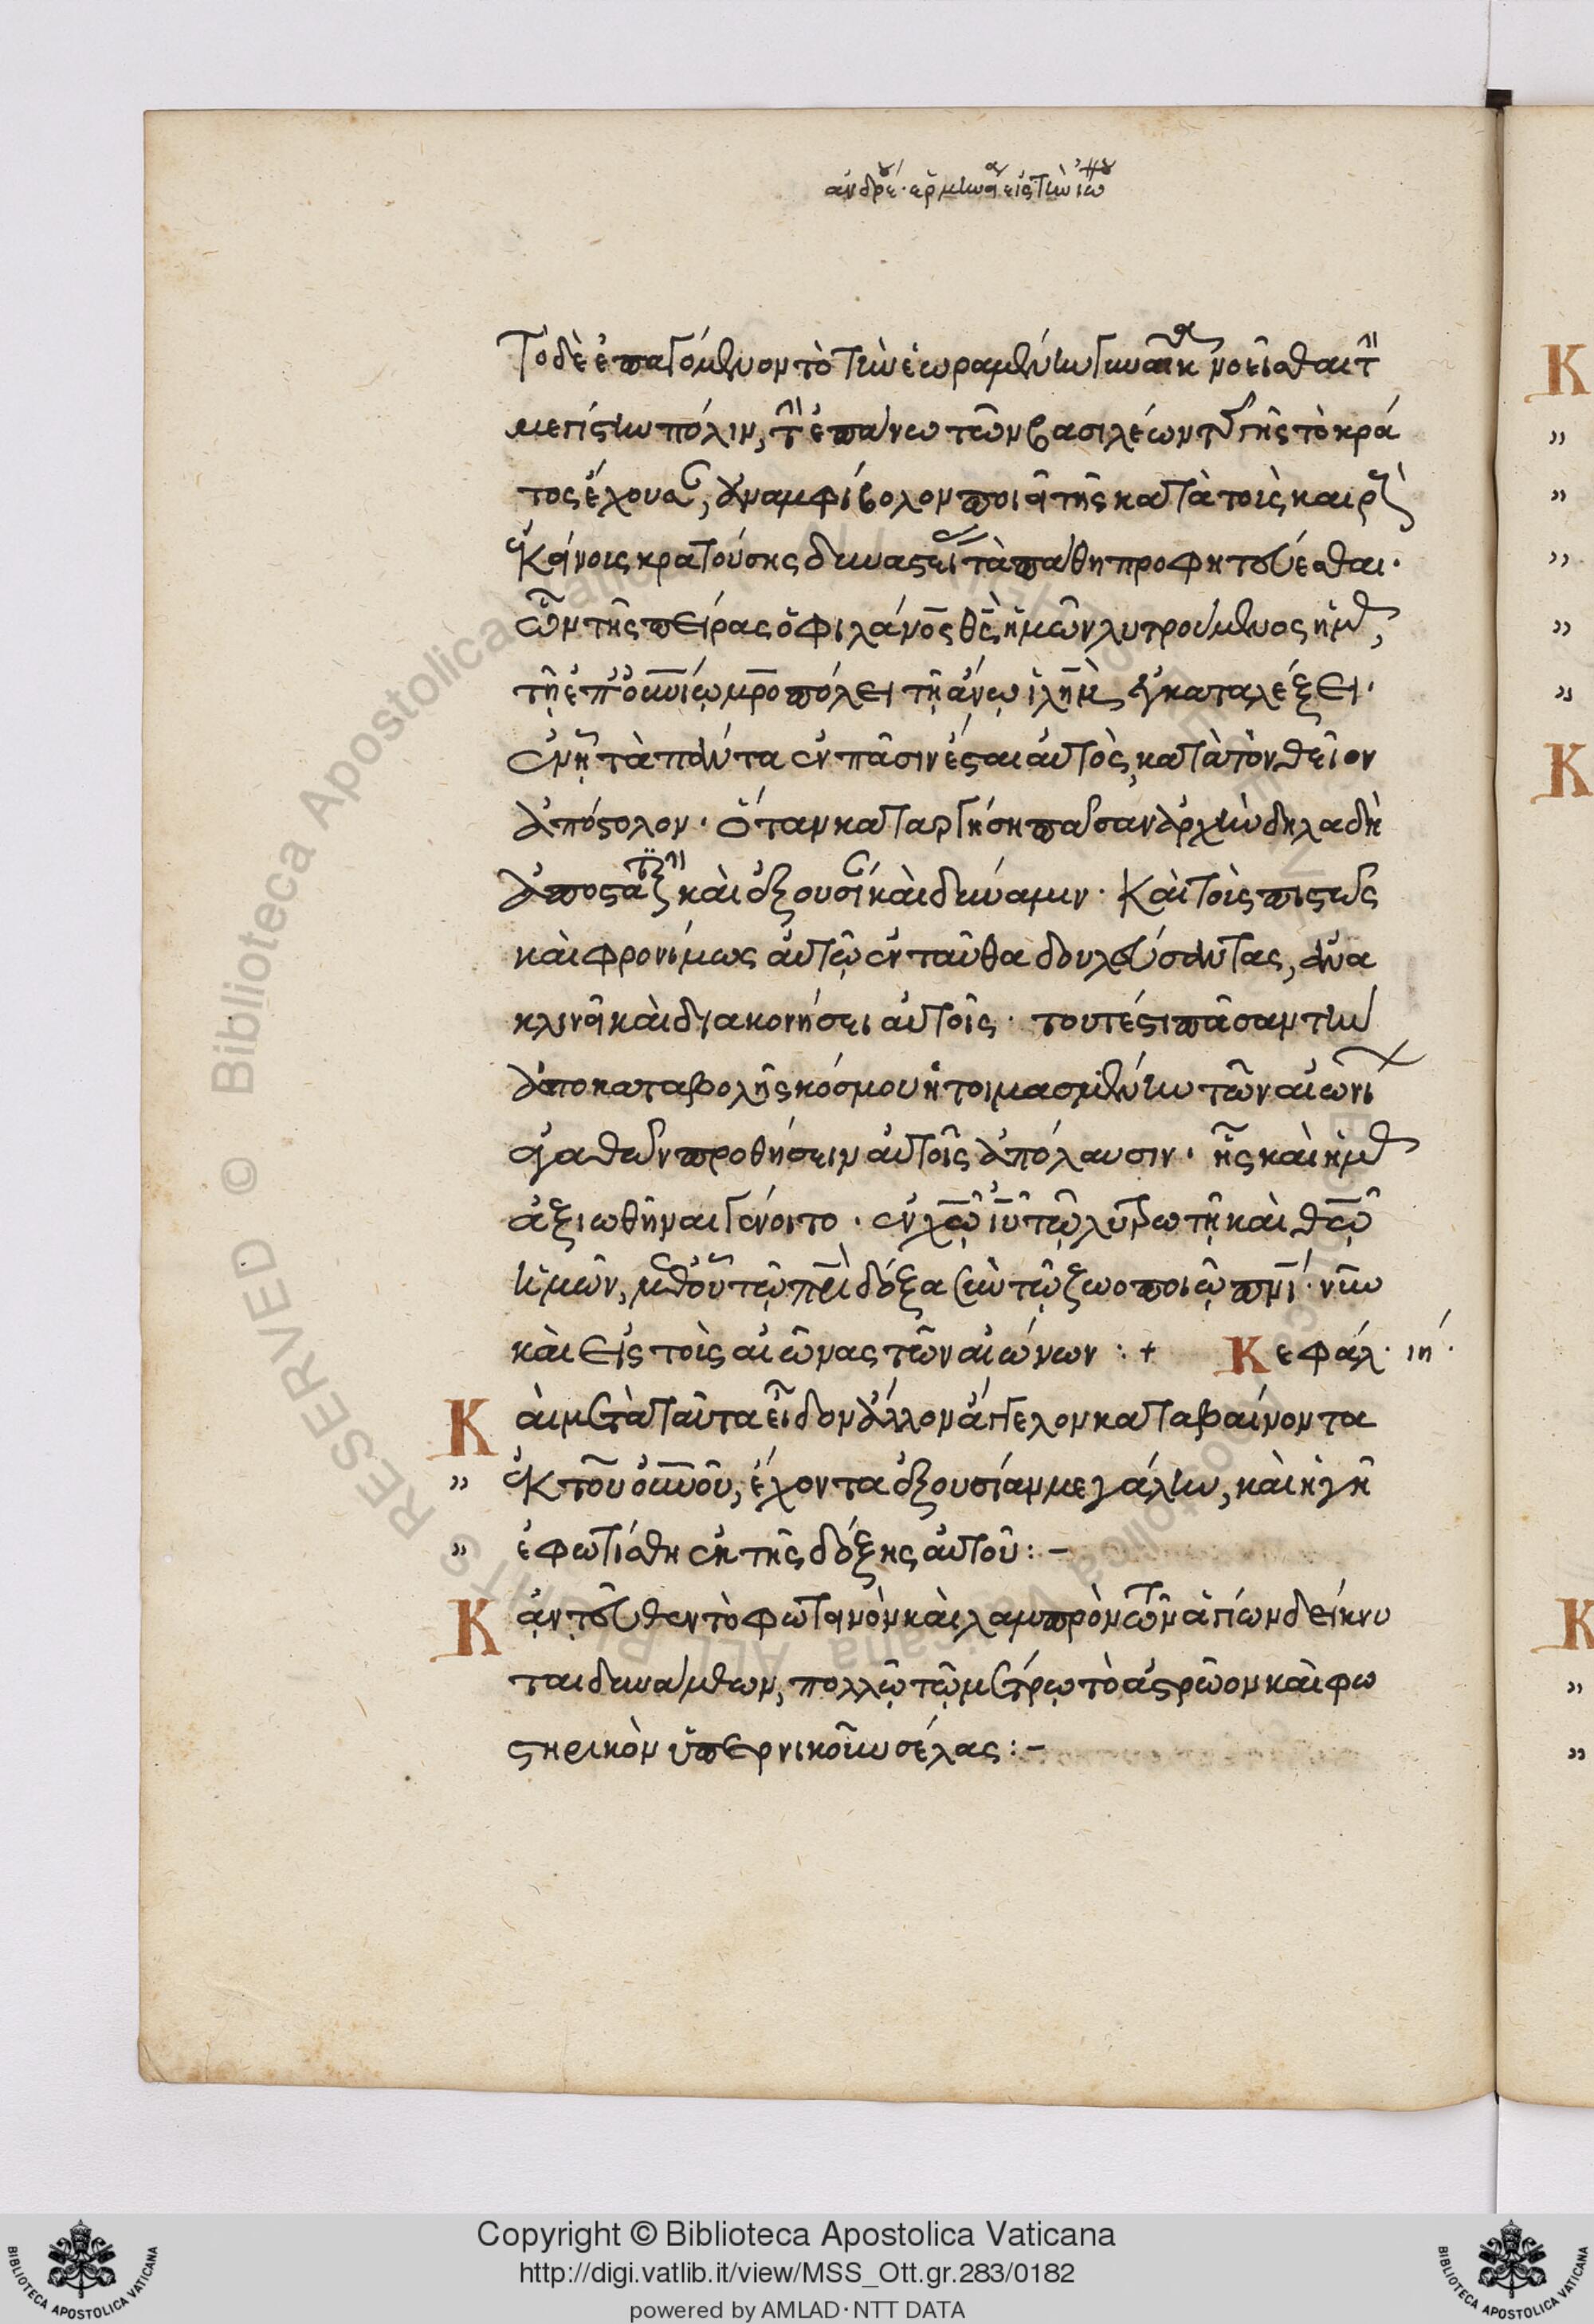 ἀνδρέ· ἑρμην εἰς τὴν
Τὸ δὲ ἐπαγόμενον τὸ τὴν ἑωραμένην γυναῖκα νοεῖσθαι τὴν
μεγίστην πόλιν, τὴν ἐπάνω τῶν βασιλέων τῆς γῆς τὸ κρά
τος ἔχουσαν, ἀναμφίβολον ποιεῖ τῆς κατὰ τοὺς καιροὺς
ἐκείνοις κρατούσης δυναστείας τὰ πάθη προφητεύεσθαι·
ὧν τῆς πείρας ὁ φιλάνος θς ἡμῶν λυτρούμενος ἡμᾶς,
τῇ ἐπουνίῳ μροπόλει τῇ ἄνω ιλημ ἐγκαταλέξει·
ἐν ᾗ τὰ πάντα ἐν πᾶσιν ἔσται αὐτὸς, κατὰ τὸν θεῖον
ἀπόστολον· ὅταν καταργήσῃ πᾶσαν ἀρχὴν δηλαδὴ
ἀποστατικὴν καὶ ἐξουσίαν καὶ δύναμιν· καὶ τοὺς πιστῶς
καὶ φρονίμως αὐτῷ ἐνταῦθα δουλεύσαντας, ἀνα
κλινεῖ καὶ διακονήσει αὐτοῖς· τουτέστι πᾶσαν τὴν
ἀπὸ καταβολῆς κόσμου ἡτοιμασμένην τῶν αἰωνίων
ἀγαθῶν προθήσειν αὐτοῖς ἀπόλαυσιν· ἧς καὶ ἡμᾶς
ἀξιωθῆναι γένοιτο· ἐν χῶ ιυ τῷ λυτρωτῇ καὶ θεῷ
ἡμῶν, μεθ' οὗ τῷ πρὶ δόξα σὺν τῷ ζωοποιῷ πνι· νῦν
καὶ εἰς τοὺς αἰῶνας τῶν αἰώνων :+ Κεφάλ· ιη·
Καὶ μετὰ ταῦτα εἶδον ἄλλον ἄγγελον καταβαίνοντα
" ἐκ τοῦ οὐνοῦ, ἔχοντα ἐξουσίαν μεγάλην, καὶ ἡ γῆ
" ἐφωτίσθη ἐκ τῆς δόξης αὐτοῦ :-
Κἀντεῦθεν τὸ φωτεινὸν καὶ λαμπρὸν τῶν ἁγίων δείκνυ
ται δυνάμεων, πολλῷ τῷ μέτρῳ τὸ ἀστρῶον καὶ φω
στηρικὸν ὑπερνικῶν σέλας :-
Copyright © Biblioteca Apostolica Vaticana
http://digi.vatlib.it/view/MSS_Ott.gr.283/0182
powered by AMLAD·NTT DATA